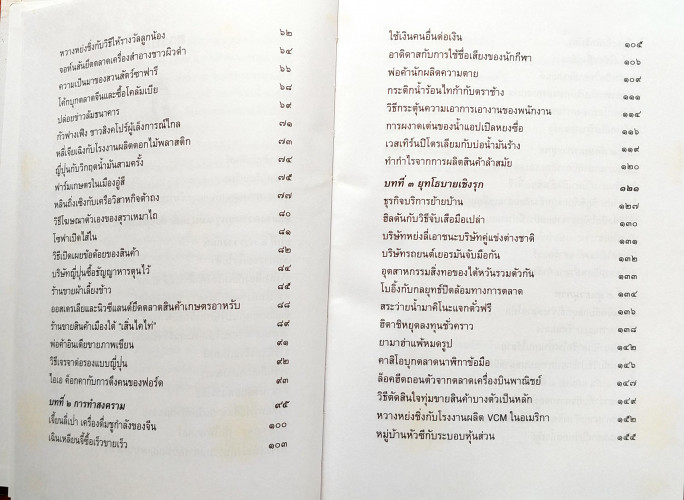 หวางหย่งชิ่งกับวิธีให้รางวัลลูกน้อง ๖๒
จอห์นสันยึดตลาดเครื่องสำอางชาวผิวดำ ๖๔
ความเป็นมาของสวนสัตว์ซาฟารี ๖๖
โค้กบุกตลาดจีนและซื้อโคลัมเบีย ๖๘
ปล่อยข่าวล้มธนาคาร ๖๙
กัวฟางเฟิง ชาวสิงคโปร์ผู้เล็งการณ์ไกล ๗๑
หลี่เจียเฉิงกับโรงงานผลิตดอกไม้พลาสติก ๗๓
ญี่ปุ่นกับวิกฤตน้ำมันสามครั้ง ๗๔
ฟาร์มเกษตรในเมืองอู๋สี ๗๕
หลินถิ่งเชิงกับเครือวิสาหกิจต้าถง ๗๗
วิธีโฆษณาตัวเองของสุราเหมาไถ ๘๐
โซฟาเปิดไส้ใน ๘๑
วิธีเปิดเผยข้อด้อยของสินค้า ๘๒
บริษัทญี่ปุ่นซื้อธัญญาหารตุนไว้ ๘๔
ร้านขายผ้าเลี้ยงข้าว ๘๕
ออสเตรเลียและนิวซีแลนด์ยึดตลาดสินค้าเกษตรอาหรับ ๘๘
ร้านขายสินค้าเมืองใต้ "เส้นโคไท่" ๘๙
พ่อค้าอินเดียขายภาพเขียน ๙๑
วิธีเจรจาต่อรองแบบญี่ปุ่น ๙๒
ไอเอ ค็อกคากับการดึงคนของฟอร์ด ๙๓
บทที่ ๒ การทำสงคราม ๙๕
เจี้ยนลี่เปา เครื่องดื่มชูกำลังของจีน ๑๐๐
เฉินเหลียนจี้ซื้อเร็วขายเร็ว ๑๐๓
ใช้เงินคนอื่นต่อเงิน ๑๐๕
อาดิดาสกับการใช้ชื่อเสียงของนักกีฬา ๑๐๖
พ่อค้านักผลิตความตาย ๑๐๙
กระติกน้ำร้อนไทก้ากับตราช้าง ๑๑๑
วิธีกระตุ้นความเอาการเอางานของพนักงาน ๑๑๔
การผงาดเด่นของน้ำแอปเปิลหยงซื่อ ๑๑๖
เวสเทิร์นปิโตรเลียมกับบ่อน้ำมันร้าง ๑๑๙
ทำกำไรจากการผลิตสินค้าล้าสมัย ๑๒๐
บทที่ ๓ ยุทโธบายเชิงรุก ๑๒๑
ธุรกิจบริการย้ายบ้าน ๑๒๗
ฮิลตันกับวิธีจับเสือมือเปล่า ๑๓๐
บริษัทหย่งลี่เอาชนะบริษัทคู่แข่งต่างชาติ ๑๓๑
บริษัทรถยนต์เยอรมันจับมือกัน ๑๓๒
อุตสาหกรรมสิ่งทอของไต้หวันรวมตัวกัน ๑๓๓
โบอิ้งกับกลยุทธ์ปิดล้อมทางการตลาด ๑๓๔
สระว่ายน้ำมาคิโนะแจกตั๋วฟรี ๑๓๗
ฮิตาชิหยุดลงทุนชั่วคราว ๑๓๘
ยามาฮ่าแพ้หมดรูป ๑๔๒
คาสิโอบุกตลาดนาฬิกาข้อมือ ๑๔๖
ล็อคฮีดถอนตัวจากตลาดเครื่องบินพาณิชย์ ๑๔๗
วิธีตัดสินใจทุ่มขายสินค้าบางตัวเป็นหลัก ๑๔๙
หวางหย่งชิ่งกับโรงงานผลิต VCM ในอเมริกา ๑๕๒
หมู่บ้านหัวซีกับระบบหุ้นส่วน ๑๕๕